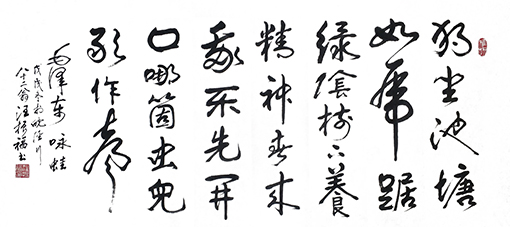 独坐池塘
如虎踞
绿陰树下養
精神春来
我不先开
口哪箇虫兒
敢作声
毛澤东 咏蛙
戊戌冬於皖
八十二翁汪 福书